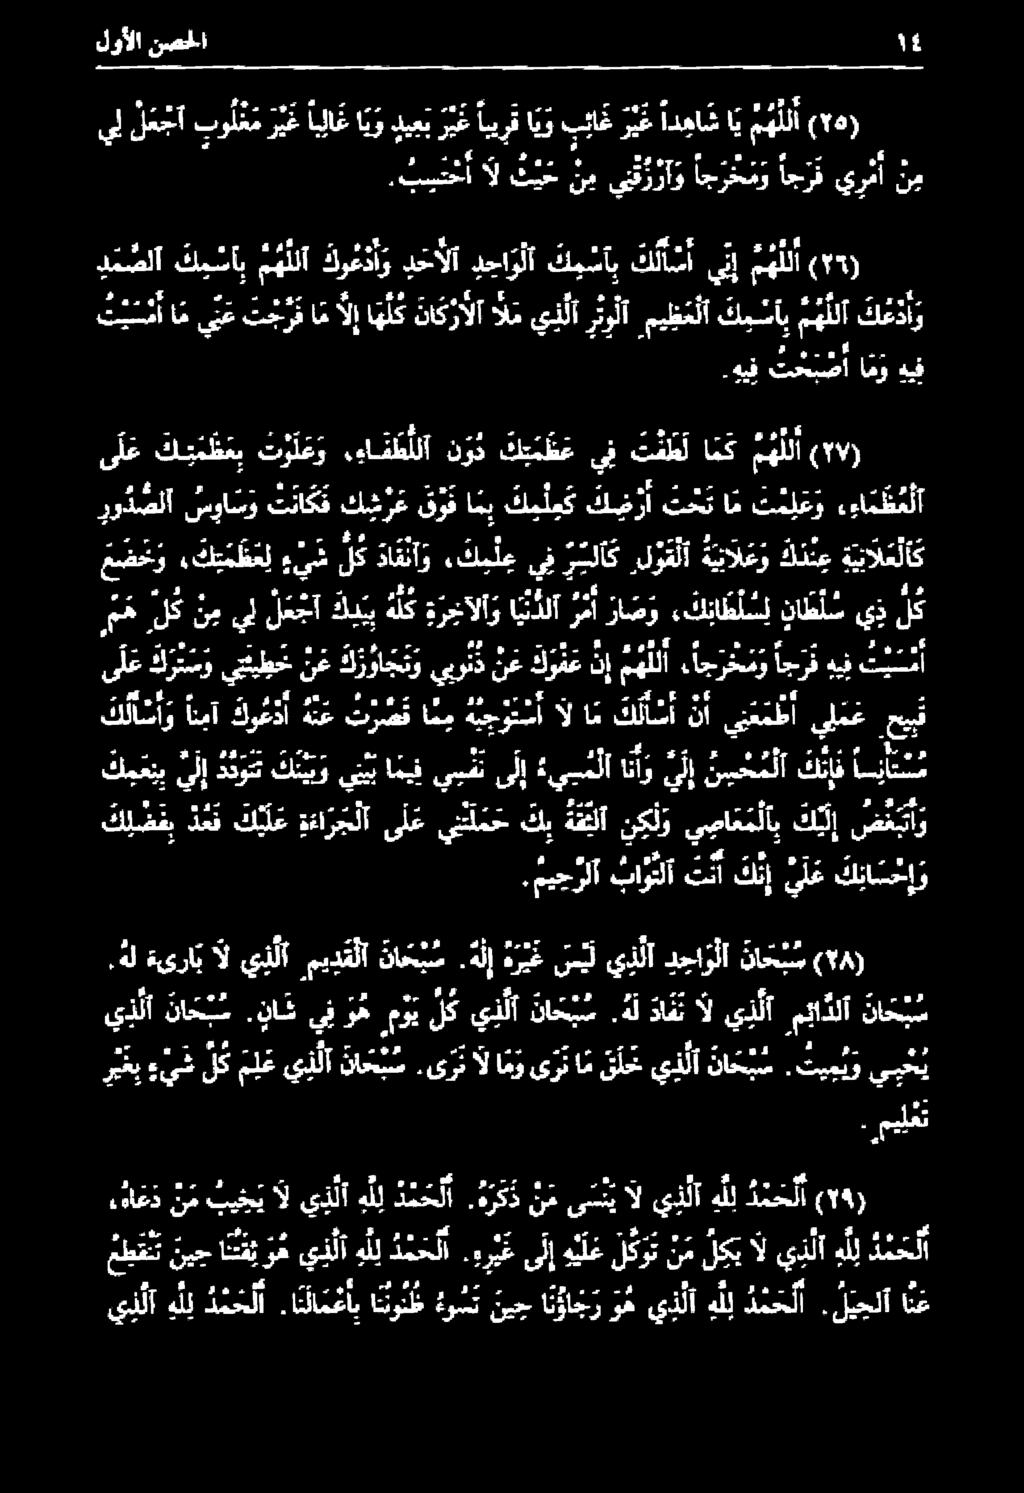 ١٤
الحصن الأول
(٢٥) أَللَّهُمَّ يَا شَاهِداً غَيْرَ غَائِبٍ وَيَا قَرِيباً غَيْرَ بَعِيدٍ وَيَا غَالِباً غَيْرَ مَغْلُوبٍ آجْعَلْ لِي
مِنْ أَمْرِي فَرَجاً وَمَخْرَجاً وَآرْزُقْنِي مِنْ حَيْثُ لَا أَحْتَسِبُ.
(٢٦) أَللَّهُمَّ إِنِّي أَسْأَلُكَ بِآسْمِكَ آلْوَاحِدِ آلْأَحَدِ وَأَدْعُوكَ آللَّهُمَّ بِآسْمِكَ آلصَّمَدِ
وَأَدْعُكَ آللَّهُمَّ بِآسْمِكَ آلْعَظِيمِ آلْوِتْرِ آلَّذِي مَلَأَ آلْأَرْكَانَ كُلَّهَا إِلَّا مَا فَرَّجْتَ عَنِّي مَا أَمْسَيْتُ
فِيهِ وَمَا أَصْبَحْتُ فِيهِ.
(٢٧) أَللَّهُمَّ كَمَا لَطَفْتَ فِي عَظَمَتِكَ دُونَ آللُّطَفَاءِ، وَعَلَوْتَ بِعَظَمَتِكَ عَلَى
آلْعُظَمَاءِ، وَعَلِمْتَ مَا تَحْتَ أَرْضِكَ كَعِلْمِكَ بِمَا فَوْقَ عَرْشِكَ فَكَانَتْ وَسَاوِسُ آلصُّدُورِ
كَآلْعَلَانِيَةِ عِنْدَكَ وَعَلَانِيَةُ آلْقَوْلِ كَآلسِّرِّ فِي عِلْمِكَ، وَآنْقَادَ كُلُّ شَيْءٍ لِعَظَمَتِكَ، وَخَضَعَ
كُلُّ ذِي سُلْطَانٍ لِسُلْطَانِكَ، وَصَارَ أَمْرُ آلدُّنْيَا وَآلْآخِرَةِ كُلُّهُ بِيَدِكَ آجْعَلْ لِي مِنْ كُلِّ هَمٍّ
أَمْسَيْتُ فِيهِ فَرَجاً وَمَخْرَجاً، أَللَّهُمَّ إِنَّ عَفْوَكَ عَنْ ذُنُوبِي وَتَجَاوُزَكَ عَنْ خَطِيئَتِي وَسَتْرَكَ عَلَى
قَبِيحِ عَمَلِي أَطْمَعَنِي أَنْ أَسْأَلَكَ مَا لَا أَسْتَوْجِبُهُ مِمَّا قَصَّرْتُ عَنْهُ أَدْعُوكَ آمِناً وَأَسْأَلُكَ
مُسْتَأْنِساً فَإِنَّكَ آلْمُحْسِنُ إِلَيَّ وَأَنَا آلْمُسِيءُ إِلَى نَفْسِي فِيمَا بَيْنِي وَبَيْنَكَ تَتَوَدَّدُ إِلَيَّ بِنِعَمِكَ
وَأَتَبَغَّضُ إِلَيْكَ بِآلْمَعَاصِي وَلٰكِنِ آلثِّقَةُ بِكَ حَمَلَتْنِي عَلَى آلْجَرَاءَةِ عَلَيْكَ فَعُدْ بِفَضْلِكَ
وَإِحْسَانِكَ عَلَيَّ إِنَّكَ أَنْتَ آلتَّوَّابُ آلرَّحِيمُ.
(٢٨) سُبْحَانَ آلْوَاحِدِ آلَّذِي لَيْسَ غَيْرَهُ إِلٰهٌ. سُبْحَانَ آلْقَدِيمِ آلَّذِي لَا بَارِىءَ لَهُ.
سُبْحَانَ آلدَّائِمِ آلَّذِي لَا نَفَادَ لَهُ. سُبْحَانَ آلَّذِي كُلَّ يَوْمٍ هُوَ فِي شَانٍ. سُبْحَانَ آلَّذِي
يُحْيِي وَيُمِيتُ. سُبْحَانَ آلَّذِي خَلَقَ مَا نَرَى وَمَا لَا نَرَى. سُبْحَانَ آلَّذِي عَلِمَ كُلَّ شَيْءٍ بِغَيْرِ
تَعْلِيمٍ.
(٢٩) أَلْحَمْدُ لِلَّهِ آلَّذِي لَا يَنْسَى مَنْ ذَكَرَهُ. أَلْحَمْدُ لِلَّهِ آلَّذِي لَا يُخَيِّبُ مَنْ دَعَاهُ،
أَلْحَمْدُ لِلَّهِ آلَّذِي لَا يَكِلُ مَنْ تَوَكَّلَ عَلَيْهِ إِلَى غَيْرِهِ. أَلْحَمْدُ لِلَّهِ آلَّذِي هُوَ ثِقَتُنَا حِينَ تَنْقَطِعُ
عَنَّا آلْحِيَلُ. أَلْحَمْدُ لِلَّهِ آلَّذِي هُوَ رَجَاؤُنَا حِينَ تَسُوءُ ظُنُونُنَا بِأَعْمَالِنَا. أَلْحَمْدُ لِلَّهِ آلَّذِي